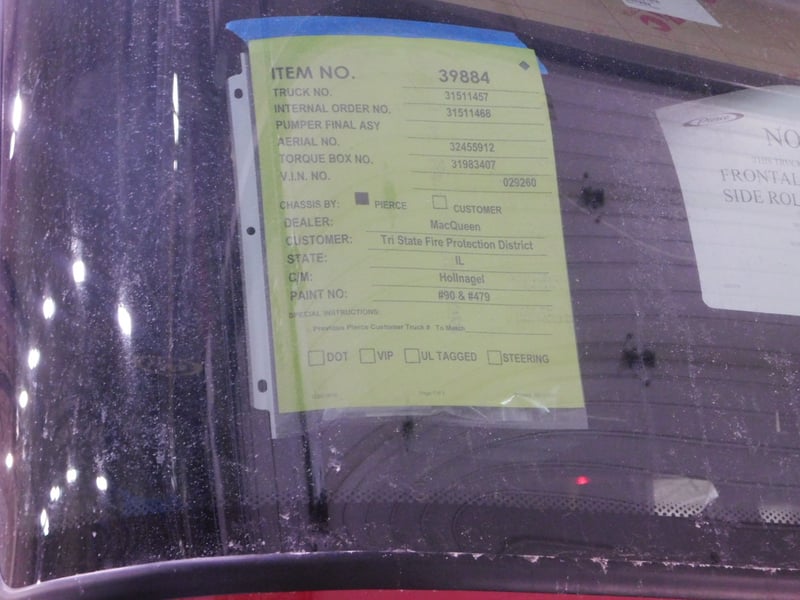 ITEM NO. 39884
TRUCK NO. 31511457
INTERNAL ORDER NO. 31511468
PUMPER FINAL ASY
AERIAL NO. 32455912
TORQUE BOX NO. 31983407
V.I.N. NO. 029260
CHASSIS BY: PIERCE CUSTOMER
DEALER: MacQueen
CUSTOMER: Tri State Fire Protection District
STATE: IL
C/M: Hollnagel
PAINT NO: #90 & #479
SPECIAL INSTRUCTIONS:
Previous Pierce Customer Truck # To Match
DOT VIP UL TAGGED STEERING
Pierce
NO
THIS TRUCK
FRONTAL
SIDE ROL